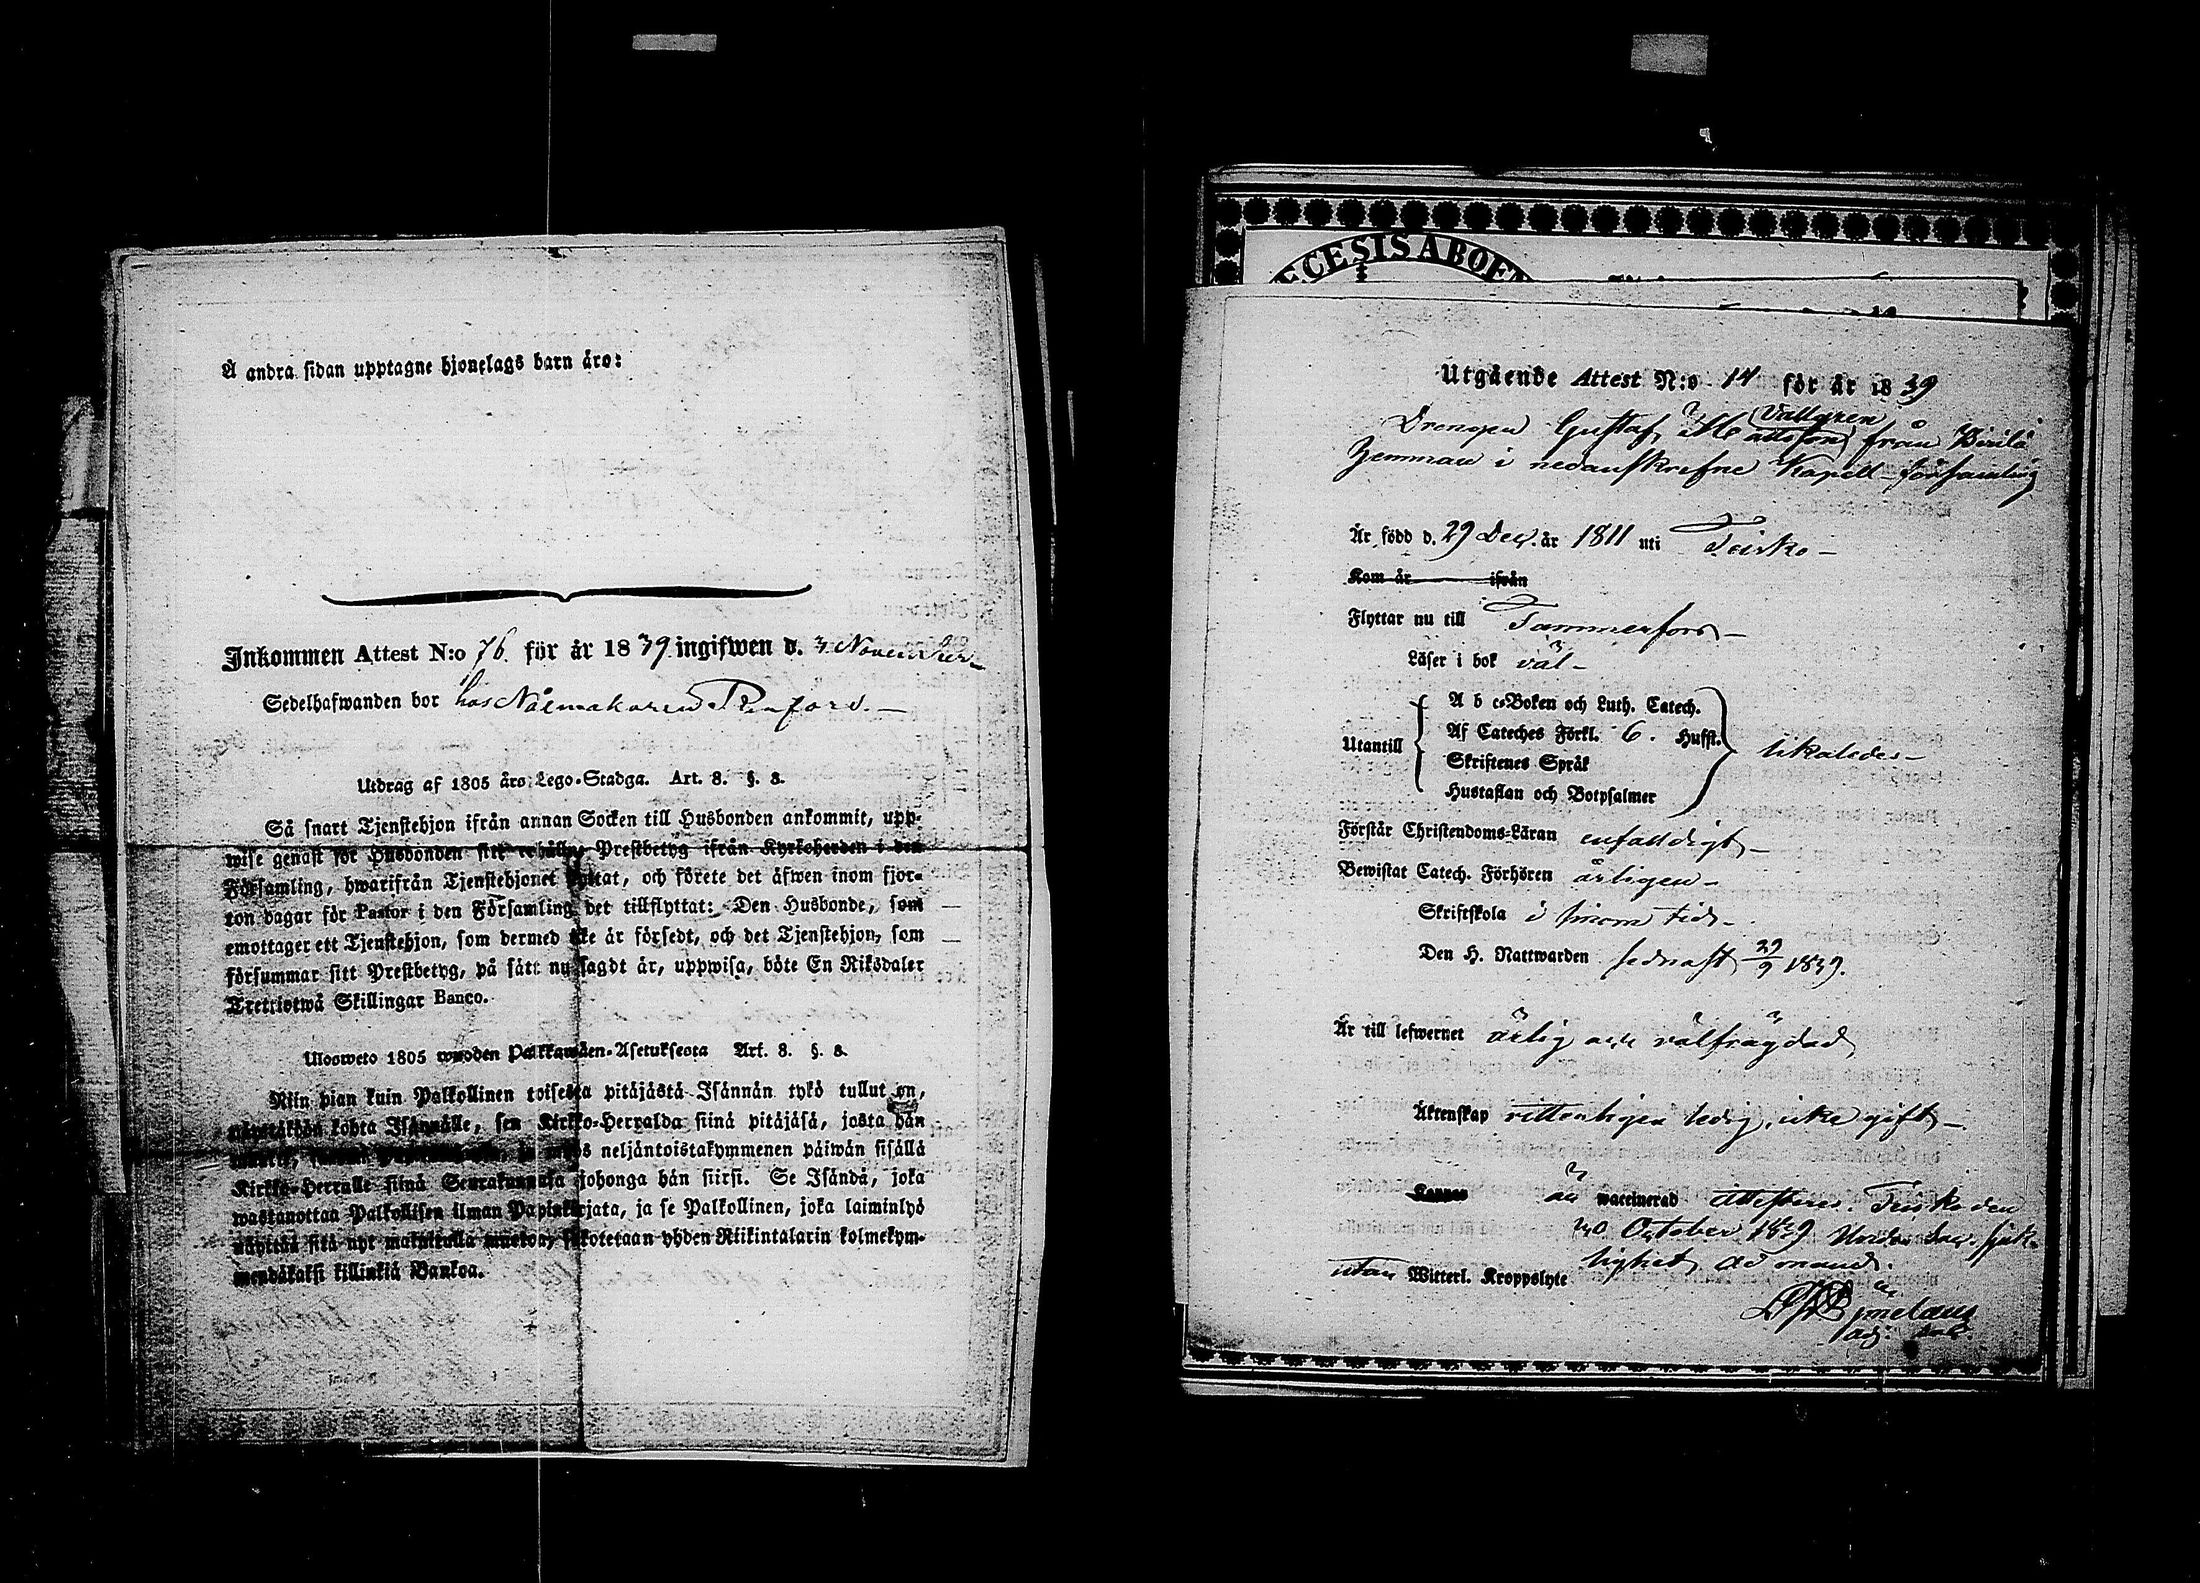 Å andra sidan upptagne hjonelags barn äro:
Inkommen Attest N:o 76. för år 1839 ingifwen d. 3 November
Sedelhafwanden bor hos Nålmakaren
Utdrag af 1805 års Lego-Stadga. Art. 8. §. 8.
Så snart Tjenstehjon ifrån annan Socken till Husbonden ankommit, upp-
wise genast för Husbonden sitt Prestbetyg ifrån Kyrkoherden i den
Församling, hwarifrån Tjenstehjonet flyttat, och förete det äfwen inom fjor-
ton dagar för Pastor i den Församling det tillflyttat: Den Husbonde, som
emottager ett Tjenstehjon, som dermed icke är försedt, och det Tjenstehjon, som
försummar sitt Prestbetyg, på sätt nu sagdt är, uppwisa, böte En Riksdaler
Trettiotwå Skillingar Banco.
Ulosweto 1805 wuoden Palkkawäen-Asetuksesta Art. 8. §. 8.
Niin pian kuin Palkollinen toisesta pitäjästä Isännän tykö tullut on,
näyttäköön kohta Isännälle, sen Kirkko-Herralda siinä pitäjäsä, josta hän
neljäntoistakymmenen päiwän sisällä
Kirkko-Herralle siinä Seurakunnasa johonga hän siirsi. Se Isändä, joka
wastanottaa Palkollisen ilman Papinkirjata, ja se Palkollinen, joka laiminlyö
näyttää sitä nyt mainitulla muoton, sakotetaan yhden Riikintalarin kolmekym-
mendäkaksi killinkiä Bankoa.
ECESIS ABOE
Utgående Attest N:o 14 för år 1839
Vallgren
Drengen Gustaf Mattsson från
Hemman i nedanskrefne Kapell-församling
Är född d. 29 Dec. år 1811 uti Teisko
Kom år ifrån
Flyttar nu till Tammerfors
Läser i bok väl
A b c-Boken och Luth. Catech.
Utantill Af Cateches Förkl. 6. Hufst. likaledes
Skriftenes Språk
Hustaflan och Botpsalmer
Förstår Christendoms-Läran enfaldigt
Bewistat Catech. Förhören årligen
Skriftskola i sinom tid
Den H. Nattwarden sednast 29/9 1839.
Är till lefwernet ärlig och välfrägdad
Äktenskap vitterligen ledig, icke gift
Kappas är waccinerad attesterar. Teisko den
30 October 1839 Under Sac. sjuk-
utan Witterl. Kroppslyte lighet ad mand.
adj. Sac.